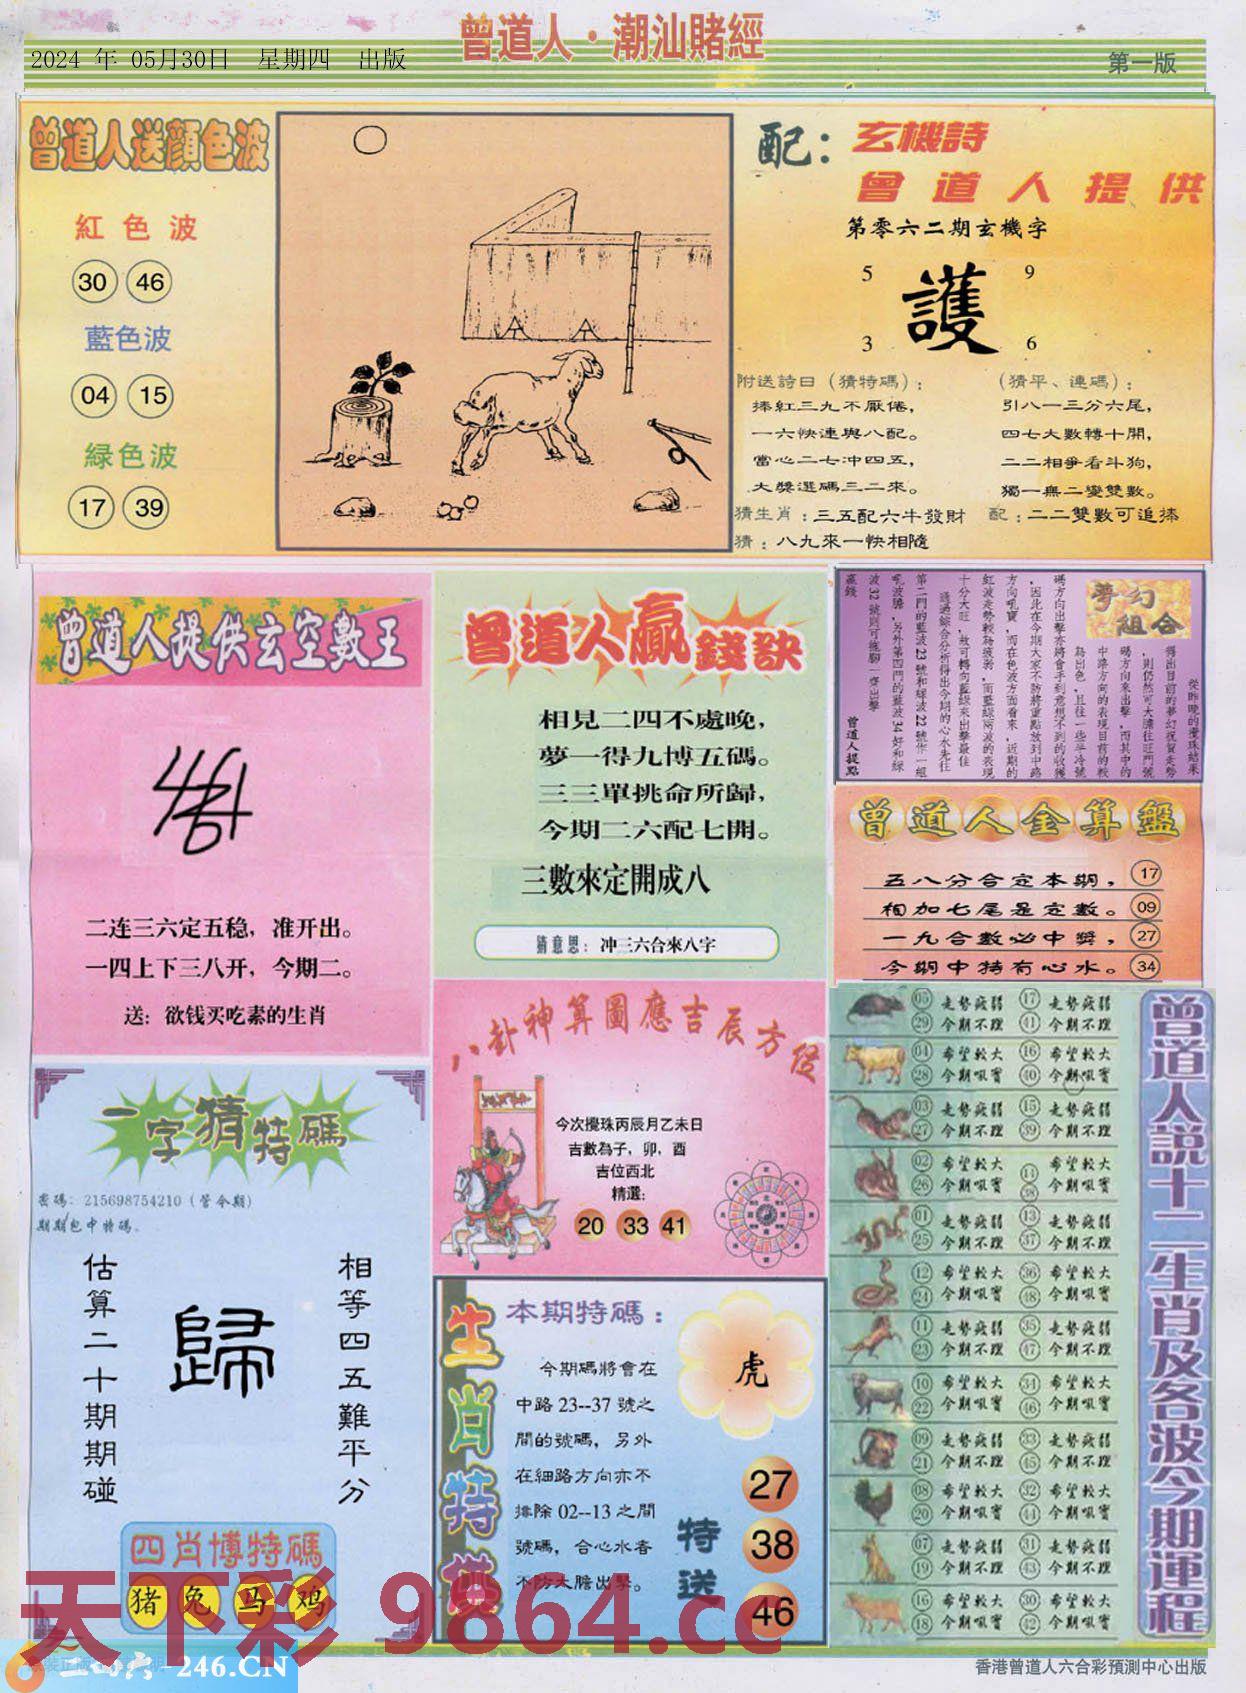 曾道人·潮汕賭經
2024 年 05月30日 星期四 出版
第一版
曾道人送顏色波
紅色波
30 46
藍色波
04 15
緑色波
17 39
配：玄機詩
曾道人提供
第零六二期玄機字
5 9
護
3 6
附送詩曰（猜特碼）；
捧紅三九不厭倦，
一六快連與八配。
當心二七冲四五，
大獎選碼三二來。
猜生肖：三五配六牛發財
猜：八九來一快相隨
（猜平、連碼）；
引八一三分六尾，
四七大數轉十開，
二二相爭看斗狗，
獨一無二變雙數。
配：二二雙數可追捧
曾道人提供玄空數王
二连三六定五稳，准开出。
一四上下三八开，今期二。
送：欲钱买吃素的生肖
曾道人贏錢訣
相見二四不處晚，
夢一得九博五碼。
三三單挑命所歸，
今期二六配七開。
三數來定開成八
猜意思：冲三六合來八字
夢幻組合
從昨晚的攪珠結果
得出目前的夢幻祝賀走勢
，則仍然可大膽往旺門號
碼方向來出擊，而其中的
中路方向的表現目前的較
為出色，且往一些半冷號
碼方向出擊亦將會手到意想不到的收獲
，因此在今期大家不防將重點放到中路
方向吼寶，而在色波方面看來，近期的
紅波走勢較為疲弱，而藍緑兩波的表現
十分大旺，故可轉向藍緑來出擊最佳
通過綜合分析得出今期的心水先往
第二門的藍波23號和緑波22號作一組
吼波膽，另外第四門的藍波34好和緑
波32號則可拖腳一齊出擊
贏錢
曾道人提點
曾道人金算盤
五八分合定本期， 17
相加七尾是定數。 09
一九合數必中獎， 27
今期中特有心水。 34
八卦神算圖應吉辰方位
今次攪珠丙辰月乙未日
吉數為子，卯，酉
吉位西北
精選：
20 33 41
一字猜特碼
密碼：215698754210（管令期）
期期包中特碼.
估算二十期期碰
歸
相等四五難平分
四肖博特碼
猪 兔 马 鸡
生肖特供
本期特碼：
今期碼將會在
中路 23--37 號之
間的號碼，另外
在細路方向亦不
排除 02--13 之間
號碼，合心水者
不防大膽出擊。
虎
特送
27
38
46
曾道人説十二生肖及各波今期運程
05 走勢疲弱 17 走勢疲弱
29 今期不理 41 今期不理
04 希望較大 16 希望較大
28 今期吼寳 40 今期吼寳
03 走勢疲弱 15 走勢疲弱
27 今期不理 39 今期不理
02 希望較大 14 希望較大
26 今期吼寳 38 今期吼寳
01 走勢疲弱 13 走勢疲弱
25 今期不理 37 今期不理
12 希望較大 36 希望較大
24 今期吼寳 48 今期吼寳
11 走勢疲弱 35 走勢疲弱
23 今期不理 47 今期不理
10 希望較大 34 希望較大
22 今期吼寳 46 今期吼寳
09 走勢疲弱 33 走勢疲弱
21 今期不理 45 今期不理
08 希望較大 32 希望較大
20 今期吼寳 44 今期吼寳
07 走勢疲弱 31 走勢疲弱
19 今期不理 43 今期不理
16 希望較大 30 希望較大
18 今期吼寳 42 今期吼寳
天下彩 9864.cc
二四六-246.CN
香港曾道人六合彩預測中心出版